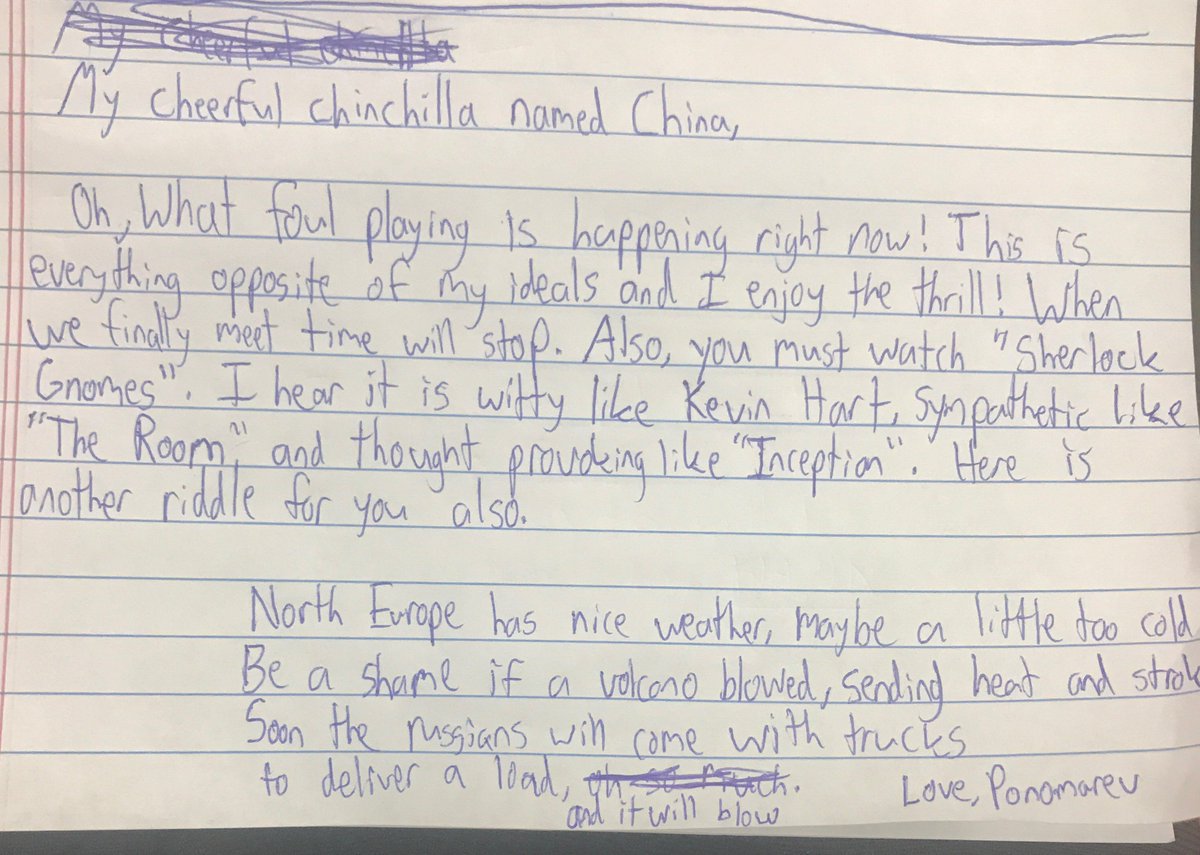 My cheerful chinchilla
My cheerful chinchilla named China,
Oh, What foul playing is happening right now! This is
everything opposite of my ideals and I enjoy the thrill! When
we finally meet time will stop. Also, you must watch "Sherlock
Gnomes". I hear it is witty like Kevin Hart, Sympathetic like
"The Room", and thought provoking like "Inception". Here is
another riddle for you also.
North Europe has nice weather, maybe a little too cold
Be a shame if a volcano blowed, sending heat and strok
Soon the russians will come with trucks
to deliver a load,
and it will blow
Love, Ponomarev